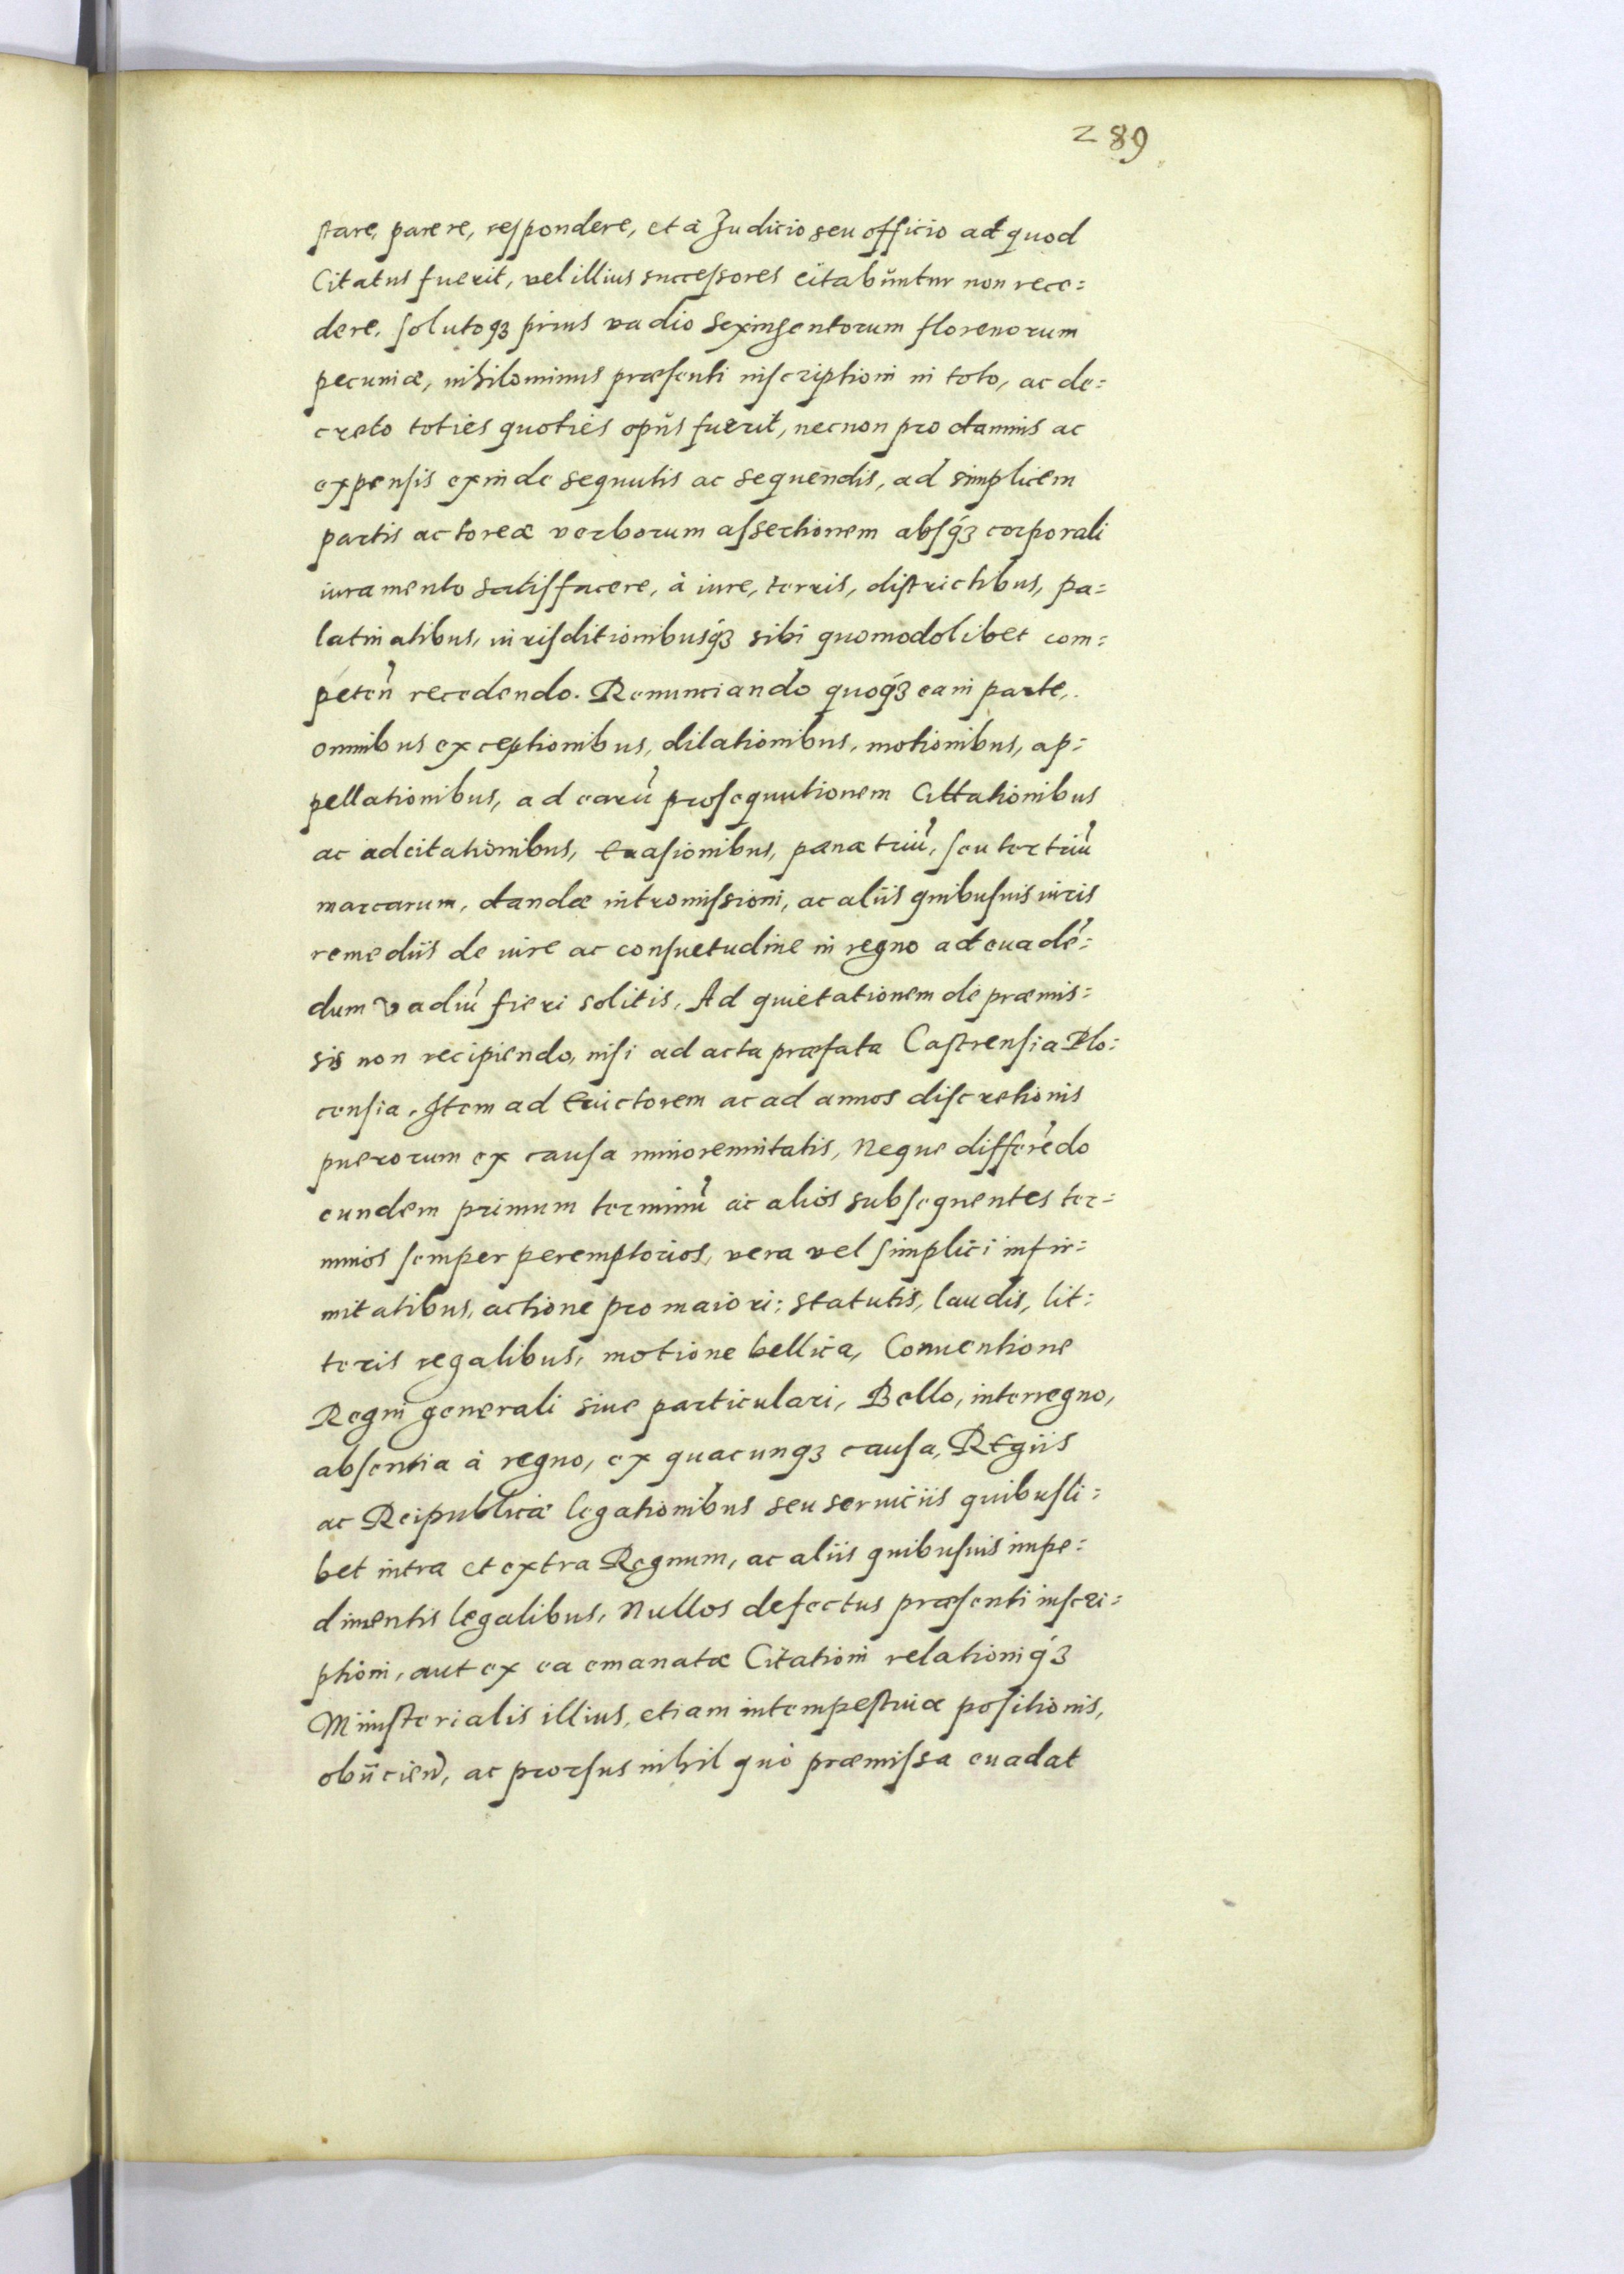 289
stare, parere, respondere, et à Judicio seu officio ad quod
Citatus fuerit, vel illius successores citabuntur non rece:
dere. solutoqꝫ prius vadio sexingentorum florenorum
pecuniæ, nihilominus præsenti inscriptioni in toto, ac de:
creto toties quoties opus fuerit, necnon pro damnis ac
expensis exinde sequutis ac sequendis, ad simplicem
partis actoreæ verborum assertionem absqꝫ corporali
iuramento satisfacere, à iure, terris, districtibus, pa:
latinatibus, iurisditionibusqꝫ sibi quomodolibet com:
peteñ recedendo. Renunciando quoqꝫ ea in parte,
omnibus exceptionibus, dilationibus, motionibus, ap:
pellationibus, ad earũ prosequutionem Cittationibus
ac adcitationibus, Euasionibus, pænæ triũ, seu ter triũ
marcarum, dandæ intromissioni, ac aliis quibusuis iuris
remediis de iure ac consuetudine in regno ad euadẽ:
dum vadiũ fieri solitis, Ad quietationem de præmis:
sis non recipiendo, nisi ad acta præfata Castrensia Plo:
censia, Item ad Euictorem ac ad annos discretionis
puerorum ex causa minorennitatis, Neque differẽdo
eundem primum terminũ ac alios subsequentes ter:
minos semper peremptorios, vera vel simplici infir:
mitatibus, actione pro maiori: statutis, laudis, lit:
teris regalibus, motione bellica, Conuentione
Regni generali siue particulari, Bello, interregno,
absentia à regno, ex quacunqꝫ causa, Regiis
ac Reipublicæ legationibus seu seruiciis quibusli:
bet intra et extra Regnum, ac aliis quibusuis impe:
dimentis legalibus, Nullos defectus præsenti inscri:
ptioni, aut ex ea emanatæ Citationi relationiqꝫ
Ministerialis illius, etiam intempestiuæ positionis,
obiicieñ, ac prorsus nihil quò præmissa euadat